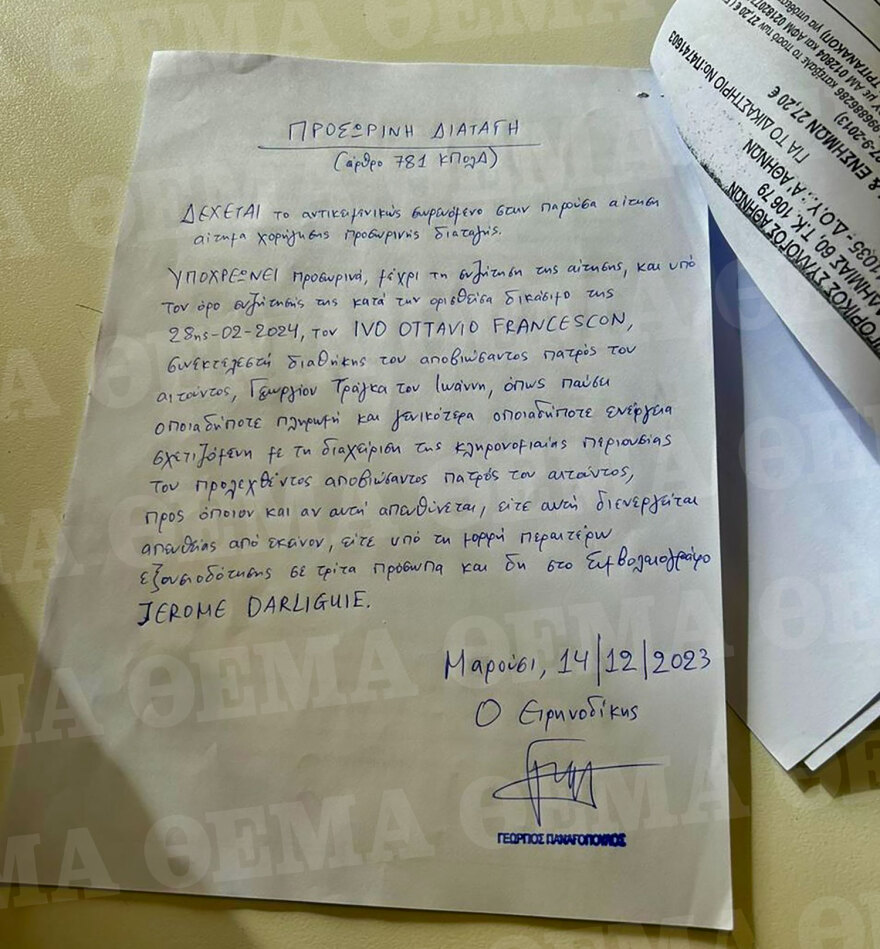 ΠΡΟΣΩΡΙΝΗ ΔΙΑΤΑΓΗ
(άρθρο 781 ΚΠολΔ)
ΔΕΧΕΤΑΙ το αντικειμενικώς σωρευόμενο στην παρούσα αίτηση
αίτημα χορήγησης προσωρινής διαταγής.
ΥΠΟΧΡΕΩΝΕΙ προσωρινά, μέχρι τη συζήτηση της αίτησης, και υπό
τον όρο συζήτησής της κατά την ορισθείσα δικάσιμο της
28ης-02-2024, τον IVO OTTAVIO FRANCESCON,
συνεκτελεστή διαθήκης του αποβιώσαντος πατρός του
αιτούντος, Γεωργίου Τράγκα του Ιωάννη, όπως παύσει
οποιαδήποτε πληρωμή και γενικότερα οποιαδήποτε ενέργεια
σχετιζόμενη με τη διαχείριση της κληρονομιαίας περιουσίας
του προλεχθέντος αποβιώσαντος πατρός του αιτούντος,
προς όποιον και αν αυτή απευθύνεται, είτε αυτή διενεργείται
απευθείας από εκείνον, είτε υπό τη μορφή περαιτέρω
εξουσιοδότησης σε τρίτα πρόσωπα και δη στο Συμβολαιογράφο
JEROME DARLIGUIE.
Μαρούσι, 14/12/2023
Ο Ειρηνοδίκης
ΓΕΩΡΓΙΟΣ ΠΑΝΑΓΟΠΟΥΛΟΣ
ΗΓΟΡΙΚΟΣ ΣΥΛΛΟΓΟΣ ΑΘΗΝΩΝ
ΔΗΜΙΑΣ 60, Τ.Κ. 106 79
11035 - Δ.Ο.Υ.: Α' ΑΘΗΝΩΝ
ΓΙΑ ΤΟ ΔΙΚΑΣΤΗΡΙΟ Νο:Π4741603
& ΕΝΣΗΜΩΝ 27,20 €
07-9-2013)
ΘΕΜΑ